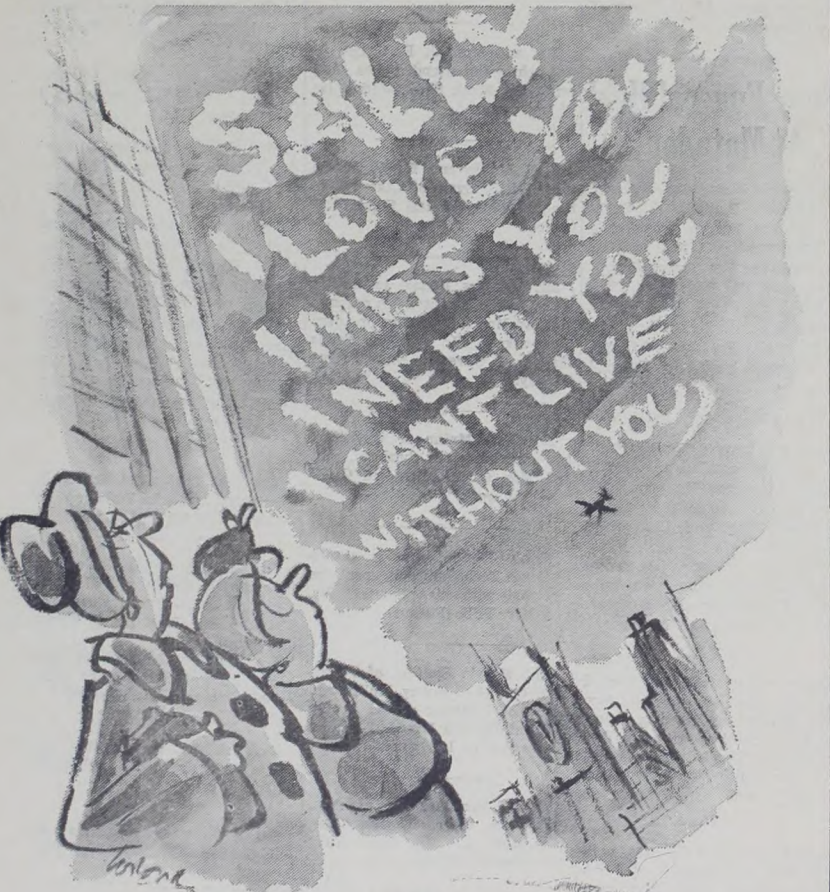 SALLY
I LOVE YOU
I MISS YOU
I NEED YOU
I CANT LIVE
WITHOUT YOU